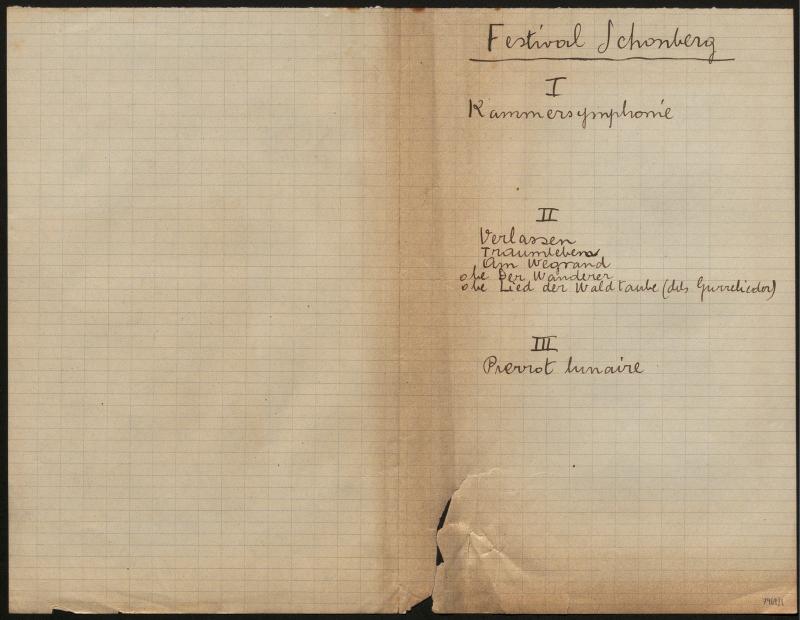 Festival Schonberg
I
Kammersymphonie
II
Verlassen
Traumleben
Am Wegrand
obe Der Wanderer
obe Lied der Waldtaube (dels Gurrelieder)
III
Pierrot lunaire